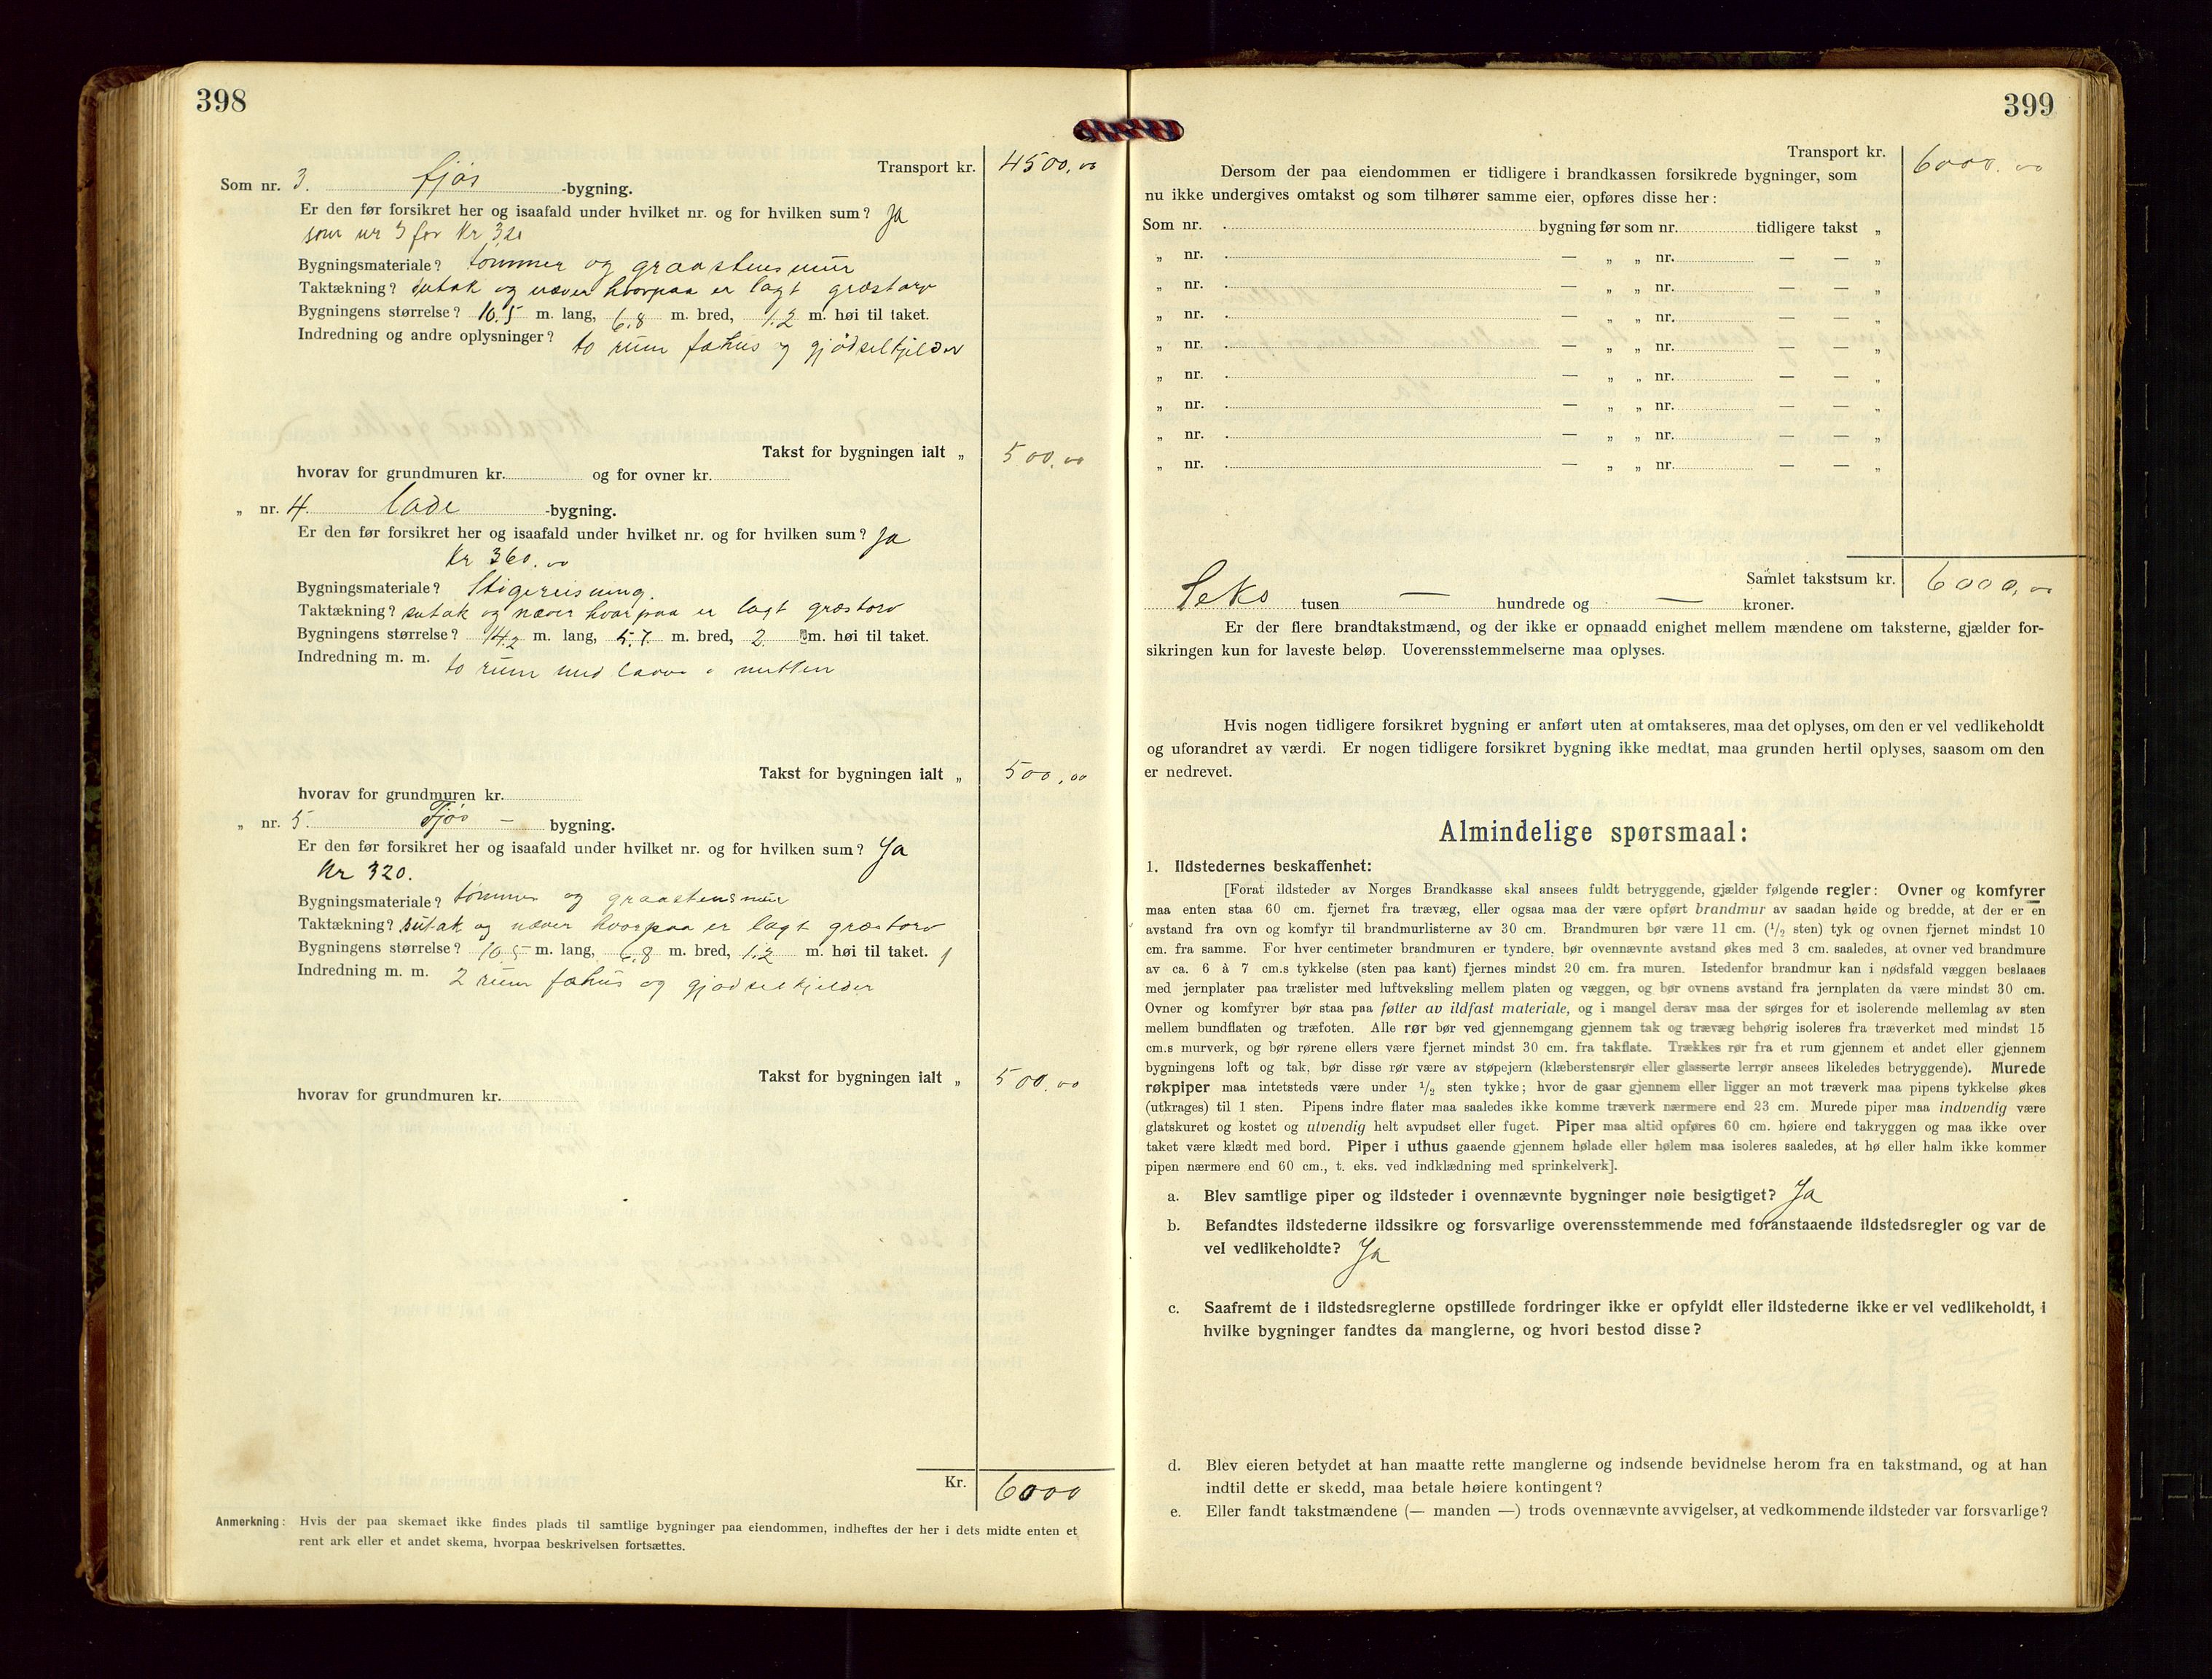 398
Transport kr. 4500,00
Som nr. 3. fjøs -bygning.
Er den før forsikret her og isaafald under hvilket nr. og for hvilken sum? Ja
som nr 3 for Kr 320
Bygningsmateriale? tømmer og graastensmur
Taktækning? sutak og næver hvorpaa er lagt græstorv
Bygningens størrelse? 10.5 m. lang, 6.8 m. bred, 1.2 m. høi til taket.
Indredning og andre oplysninger? to rum fæhus og gjødselkjelder
Takst for bygningen ialt „ 500,00
hvorav for grundmuren kr. og for ovner kr.
„ nr. 4. Lade -bygning.
Er den før forsikret her og isaafald under hvilket nr. og for hvilken sum? Ja
Kr 360.00
Bygningsmateriale? Stigereisning.
Taktækning? sutak og næver hvorpaa er lagt græstorv
Bygningens størrelse? 14.2 m. lang, 5.7. m. bred, 2. m. høi til taket.
Indredning m. m. to rum med laave i mitten
Takst for bygningen ialt „ 500,00
hvorav for grundmuren kr.
„ nr. 5. Fjøs – bygning.
Er den før forsikret her og isaafald under hvilket nr. og for hvilken sum? Ja
Kr 320.
Bygningsmateriale? tømmer og graastensmur
Taktækning? sutak og næver hvorpaa er lagt græstorv
Bygningens størrelse? 10.5 m. lang, 6.8 m. bred, 1.2 m. høi til taket.
Indredning m. m. 2 rum fæhus og gjødselkjelder
Takst for bygningen ialt „ 500,00
hvorav for grundmuren kr.
Kr. 6000
Anmerkning: Hvis der paa skemaet ikke findes plads til samtlige bygninger paa eiendommen, indheftes der her i dets midte enten et
rent ark eller et andet skema, hvorpaa beskrivelsen fortsættes.
399
Transport kr. 6000,00
Dersom der paa eiendommen er tidligere i brandkassen forsikrede bygninger, som
nu ikke undergives omtakst og som tilhører samme eier, opføres disse her:
Som nr. bygning før som nr. tidligere takst „
„ nr. — „ „ nr. — — „
„ nr. — „ „ nr. — — „
„ nr. — „ „ nr. — — „
„ nr. — „ „ nr. — — „
„ nr. — „ „ nr. — — „
„ nr. — „ „ nr. — — „
„ nr. — „ „ nr. — — „
„ nr. — „ „ nr. — — „
Samlet takstsum kr. 6000,00
Seks tusen — hundrede og — kroner.
Er der flere brandtakstmænd, og der ikke er opnaadd enighet mellem mændene om taksterne, gjælder for-
sikringen kun for laveste beløp. Uoverensstemmelserne maa oplyses.
Hvis nogen tidligere forsikret bygning er anført uten at omtakseres, maa det oplyses, om den er vel vedlikeholdt
og uforandret av værdi. Er nogen tidligere forsikret bygning ikke medtat, maa grunden hertil oplyses, saasom om den
er nedrevet.
Almindelige spørsmaal:
1. Ildstedernes beskaffenhet:
[Forat ildsteder av Norges Brandkasse skal ansees fuldt betryggende, gjælder følgende regler: Ovner og komfyrer
maa enten staa 60 cm. fjernet fra trævæg, eller ogsaa maa der være opført brandmur av saadan høide og bredde, at der er en
avstand fra ovn og komfyr til brandmurlisterne av 30 cm. Brandmuren bør være 11 cm. (1/2 sten) tyk og ovnen fjernet mindst 10
cm. fra samme. For hver centimeter brandmuren er tyndere, bør ovennævnte avstand økes med 3 cm. saaledes, at ovner ved brandmure
av ca. 6 à 7 cm.s tykkelse (sten paa kant) fjernes mindst 20 cm. fra muren. Istedenfor brandmur kan i nødsfald væggen beslaaes
med jernplater paa trælister med luftveksling mellem platen og væggen, og bør ovnens avstand fra jernplaten da være mindst 30 cm.
Ovner og komfyrer bør staa paa føtter av ildfast materiale, og i mangel derav maa der sørges for et isolerende mellemlag av sten
mellem bundflaten og træfoten. Alle rør bør ved gjennemgang gjennem tak og trævæg behørig isoleres fra træverket med mindst 15
cm.s murverk, og bør rørene ellers være fjernet mindst 30 cm. fra takflate. Trækkes rør fra et rum gjennem et andet eller gjennem
bygningens loft og tak, bør disse rør være av støpejern (klæberstensrør eller glasserte lerrør ansees likeledes betryggende). Murede
røkpiper maa intetsteds være under 1/2 sten tykke; hvor de gaar gjennem eller ligger an mot træverk maa pipens tykkelse økes
(utkrages) til 1 sten. Pipens indre flater maa saaledes ikke komme træverk nærmere end 23 cm. Murede piper maa indvendig være
glatskuret og kostet og utvendig helt avpudset eller fuget. Piper maa altid opføres 60 cm. høiere end takryggen og maa ikke over
taket være klædt med bord. Piper i uthus gaaende gjennem hølade eller hølem maa isoleres saaledes, at hø eller halm ikke kommer
pipen nærmere end 60 cm., t. eks. ved indklædning med sprinkelverk].
a. Blev samtlige piper og ildsteder i ovennævnte bygninger nøie besigtiget? Ja
b. Befandtes ildstederne ildssikre og forsvarlige overensstemmende med foranstaaende ildstedsregler og var de
vel vedlikeholdte? Ja
c. Saafremt de i ildstedsreglerne opstillede fordringer ikke er opfyldt eller ildstederne ikke er vel vedlikeholdt, i
hvilke bygninger fandtes da manglerne, og hvori bestod disse?
d. Blev eieren betydet at han maatte rette manglerne og indsende bevidnelse herom fra en takstmand, og at han
indtil dette er skedd, maa betale høiere kontingent?
e. Eller fandt takstmændene (— manden —) trods ovennævnte avvigelser, at vedkommende ildsteder var forsvarlige?